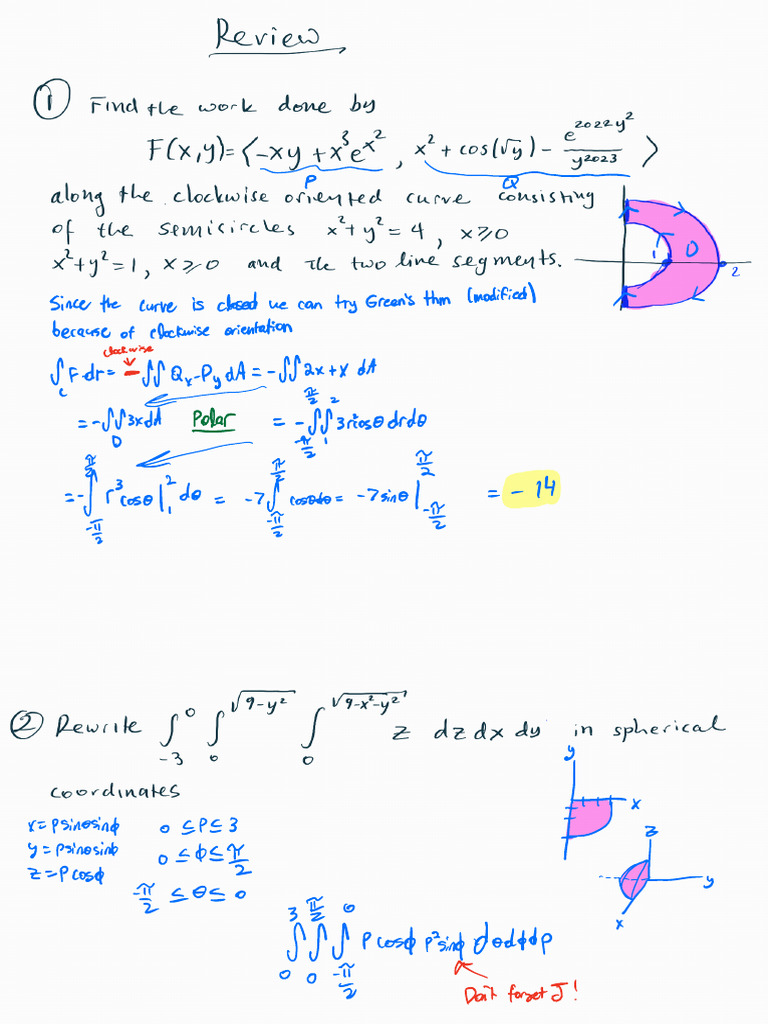 Review
① Find the work done by
F(x,y)=⟨-xy + x³e^{x²}, x² + cos(√y) - e^{2022y²}/y^{2023}⟩
P Q
along the clockwise oriented curve consisting
of the semicircles x²+y²=4, x≥0
x²+y²=1, x≥0 and the two line segments.
D
1
2
Since the curve is closed we can try Green's thm (modified)
because of clockwise orientation
clockwise
∫_C F·dr = -∬ Qx-Py dA = -∬ 2x+x dA
= -∬_D 3x dA Polar = -∫_{-π/2}^{π/2}∫_1^2 3r²cosθ dr dθ
= -∫_{-π/2}^{π/2} r³cosθ|_1^2 dθ = -7∫_{-π/2}^{π/2} cosθdθ = -7sinθ|_{-π/2}^{π/2} = -14
② Rewrite ∫_{-3}^0 ∫_0^{√(9-y²)} ∫_0^{√(9-x²-y²)} z dz dx dy in spherical
coordinates
y
x
z
y
x
x=ρsinθsinφ 0≤ρ≤3
y=ρsinθsinφ 0≤φ≤π/2
z=ρcosφ -π/2≤θ≤0
∫_0^3 ∫_0^{π/2} ∫_{-π/2}^0 ρcosφ ρ²sinφ dθdφdρ
Don't forget J!